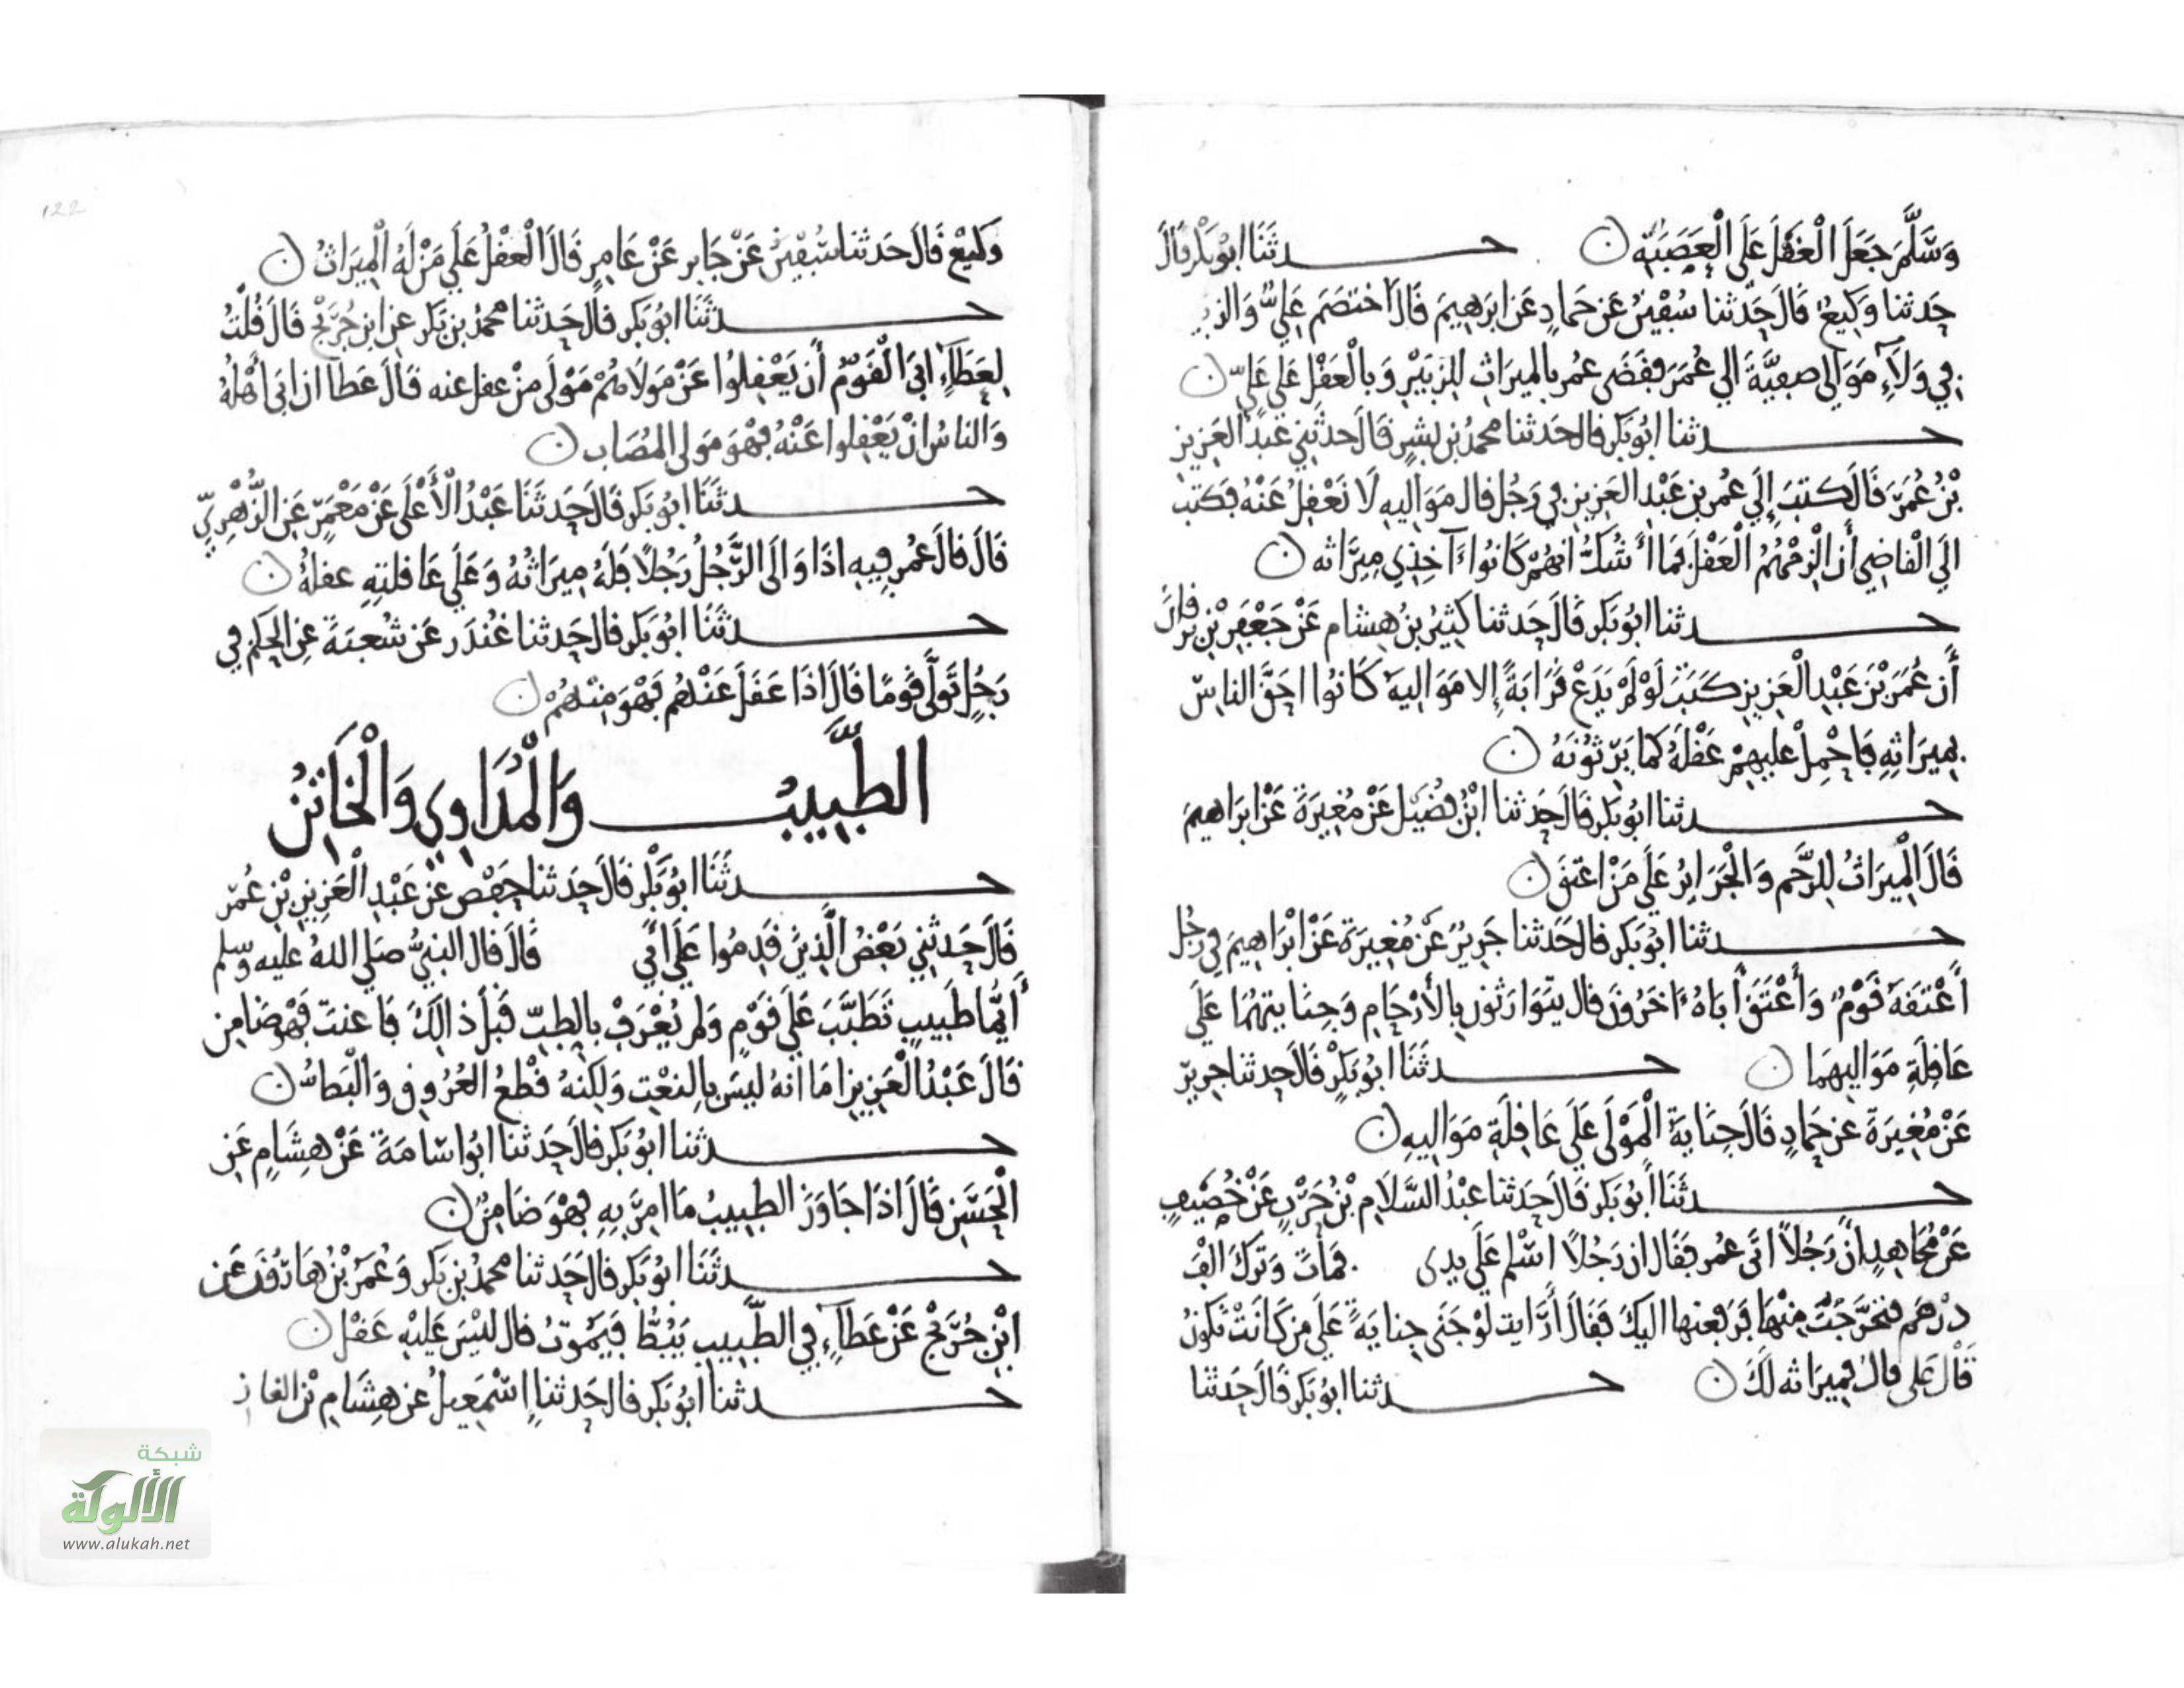 وَسَلَّمَ جَعَلَ الْعَقْلَ عَلَى الْعَصَبَةِ ن حـــدثَنَا ابُو بَكْر قَالَ
حَدثنا وَكِيعٌ قَالَ حَدّثنا سُفْينُ عَن حَمادٍ عَن ابرَهِيمَ قَالَ اختَصَمَ عَلِيٌّ وَالزبير
فِي وَلَآءِ مَوَالِي صفِيَّةَ الي عُمَرَ فقَضَى عمُر بالميرَاثِ لِلزبَيْرِ وَبالْعَقْلِ عَلَى عَلِيٍّ ن
حـــدثنا ابُو بَكر قال حَدثنا محمدُ بن بشرٍ قَالَ حدثَنِي عَبدُ العَزِيزِ
بْنُ عُمَرَ قَالَ كتبَ إِلَي عُمر بنِ عَبْدِ العَزِيزِ فِي رَجُل قال مَوَالِيهِ لَا نَعْقِلُ عَنْهُ فكَتب
الَي الْقاضِي أن الْزِمْهُمُ الْعَقْلَ فمَا أشُكُّ انهُمْ كَانُوا آخِذِي مِيرَاثه ن
حـــدثنا ابُو بَكر قَالَ حَدثنا كَثِيرُ بنُ هِشام عَنْ جَعْفَرِ بْنِ بُرْقان
أَن عُمَرَ بْنَ عَبْدِ الْعَزِيزِ كَتَبَ لَوْ لَمْ يَدَعْ قَرَابَةً إلا مَوَالِيهَ كَانُوا احَقَّ الناسِ
بمِيرَاثِهِ فَاحْمِلْ عليهِمْ عَقْلَهُ كما يَرثونَهُ ن
حـــدثنا ابُو بَكر قَالَ حَدثنا ابْنُ فُضَيْل عَنْ مُغِيرَةَ عَنْ ابرَاهيمَ
قَالَ الْمِيرَاثُ لِلرَّحِم وَالْجَرَايِرُ عَلَى مَنْ اعتقَ ن
حـــدثنا ابُو بَكر قال حَدثنا جَرِيرٌ عَنْ مُغِيرَة عَنْ ابْرَاهِيمَ فِي رَجُل
أَعْتَقَهُ قَوْمٌ وَأَعْتَقَ أَبَاهُ آخَرُونَ قال يتوَارثون بالأَرْحَامِ وَجِنَايتهُمَا عَلَى
عَاقِلَةِ مَوَالِيهمَا ن حـــدثَنَا ابُو بَكْرٍ قَالَ حَدثنا جرير
عَنْ مُغِيرَةَ عن حَمادٍ قَالَ جِنَايَةُ الْمَوْلَى عَلَى عَاقِلَةِ مَوَالِيهِ ن
حـــدثَنَا أبُو بَكر قَالَ حَدثنا عبْدُ السَّلَامِ بْنُ حَرْبٍ عَنْ خُصَيْفٍ
عَنْ مُجَاهِدٍ انَّ رَجُلاً اتَى عُمر فقَال ان رَجُلاً اسْلم عَلَى يدى فمَاتَ وَتركَ الْفَ
درْهم فتحَرَّجْتُ مِنْهَا فَرَفعتها اليكَ فقَالَ أَرَايتَ لَوْ جَنَى جِنَايَةً عَلَى مَن كَانَتْ تكونُ
قَالَ عَلَي قال فمِيرَاثه لَكَ ن حـــدثنا ابُو بَكر قَالَ حَدثَنا
وَكِيعٌ قَالَ حَدثنا سُفْيٰنُ عَنْ جَابِر عَنْ عَامِرٍ قَالَ الْعَقْلُ عَلَي مَنْ لَهُ الْمِيرَاثُ ن
حـــدثَنَا ابُو بَكر قال حَدثنا محمدُ بن بَكر عن ابن جُرَيْجٍ قَالَ قُلْتُ
لِعَطَآءٍ ابَى الْقَوْمُ أَن يَعْقِلُوا عَنْ مَولَاهُمْ مَوْلَى مَنْ عقل عنه قَالَ عَطَا ان ابَى أهْلُهُ
وَالناسُ انْ يَعْقِلوا عَنْهُ فهْوَ مَولى المُصَاب ن
حـــدثَنَا ابُو بَكر قَالَ حَدثَنَا عَبْدُ الأَعْلَى عَنْ مَعْمَرٍ عَن الزُّهْرِيِّ
قَالَ قَالَ عمُر فِيهِ اذَا وَالَى الرَّجُلُ رَجُلًا فلَهُ مِيرَاثهُ وَعَلَى عَاقلتِهِ عقلهُ ن
حـــدثَنَا ابُو بَكر قال حَدثنا غُنْدَر عَن شُعبَةَ عنِ الحَكَم في
رَجُلٍ تَوَلَّى قَومًا قَالَ اذَا عَقَلَ عَنْهُم فَهْوَ مِنْهُمْ ن
الطَّبِيبُ وَالْمُدَاوِي وَالْخَاتِنُ
حـــدثَنَا ابُو بَكْر قَالَ حَدثنا حَفْص عَن عَبْدِ الْعَزِيزِ بْنِ عُمَر
قَالَ حَدثَنِي بَعْضُ الَّذِينَ قَدِمُوا عَلَى أَبِي قَالَ قال النبيُّ صَلي اللهُ عليه وَسلم
أَيُّمَا طَبِيبٍ تَطَبَّبَ عَلَى قَوْمٍ وَلم يُعْرَفْ بالطِبّ قَبْلَ ذالِكَ فَاعنتَ فَهْوَ ضَامِن
قَالَ عَبْدُ الْعَزِيزِ امَا انهُ ليسَ بالنعْتِ وَلَكِنهُ قَطعُ العُرُوقِ وَالْبَطُّ ن
حـــدثنا ابُو بَكر قَالَ حَدثنا ابُو اسَامَةَ عَنْ هِشَامٍ عَن
الْحَسَنِ قَالَ اذَا جَاوَزَ الطبِيبُ مَا امِرَ بِهِ فهْوَ ضَامِنٌ ن
حـــدثَنَا ابُو بَكر قال حَدَثنا محمدُ بن بَكر وَعُمَرُ بْنُ هَارُونَ عَن
ابْنِ جُرَيْجٍ عَنْ عَطَآءٍ في الطَّبِيبِ يَبُطُّ فيَمُوتُ قال ليْسَ عَليْهِ عَقْل ن
حـــدثنا ابُو بَكر قال حَدثنا اسْمعيلُ عن هِشَام بْنِ الغاز
شبكة
الألوكة
www.alukah.net
122